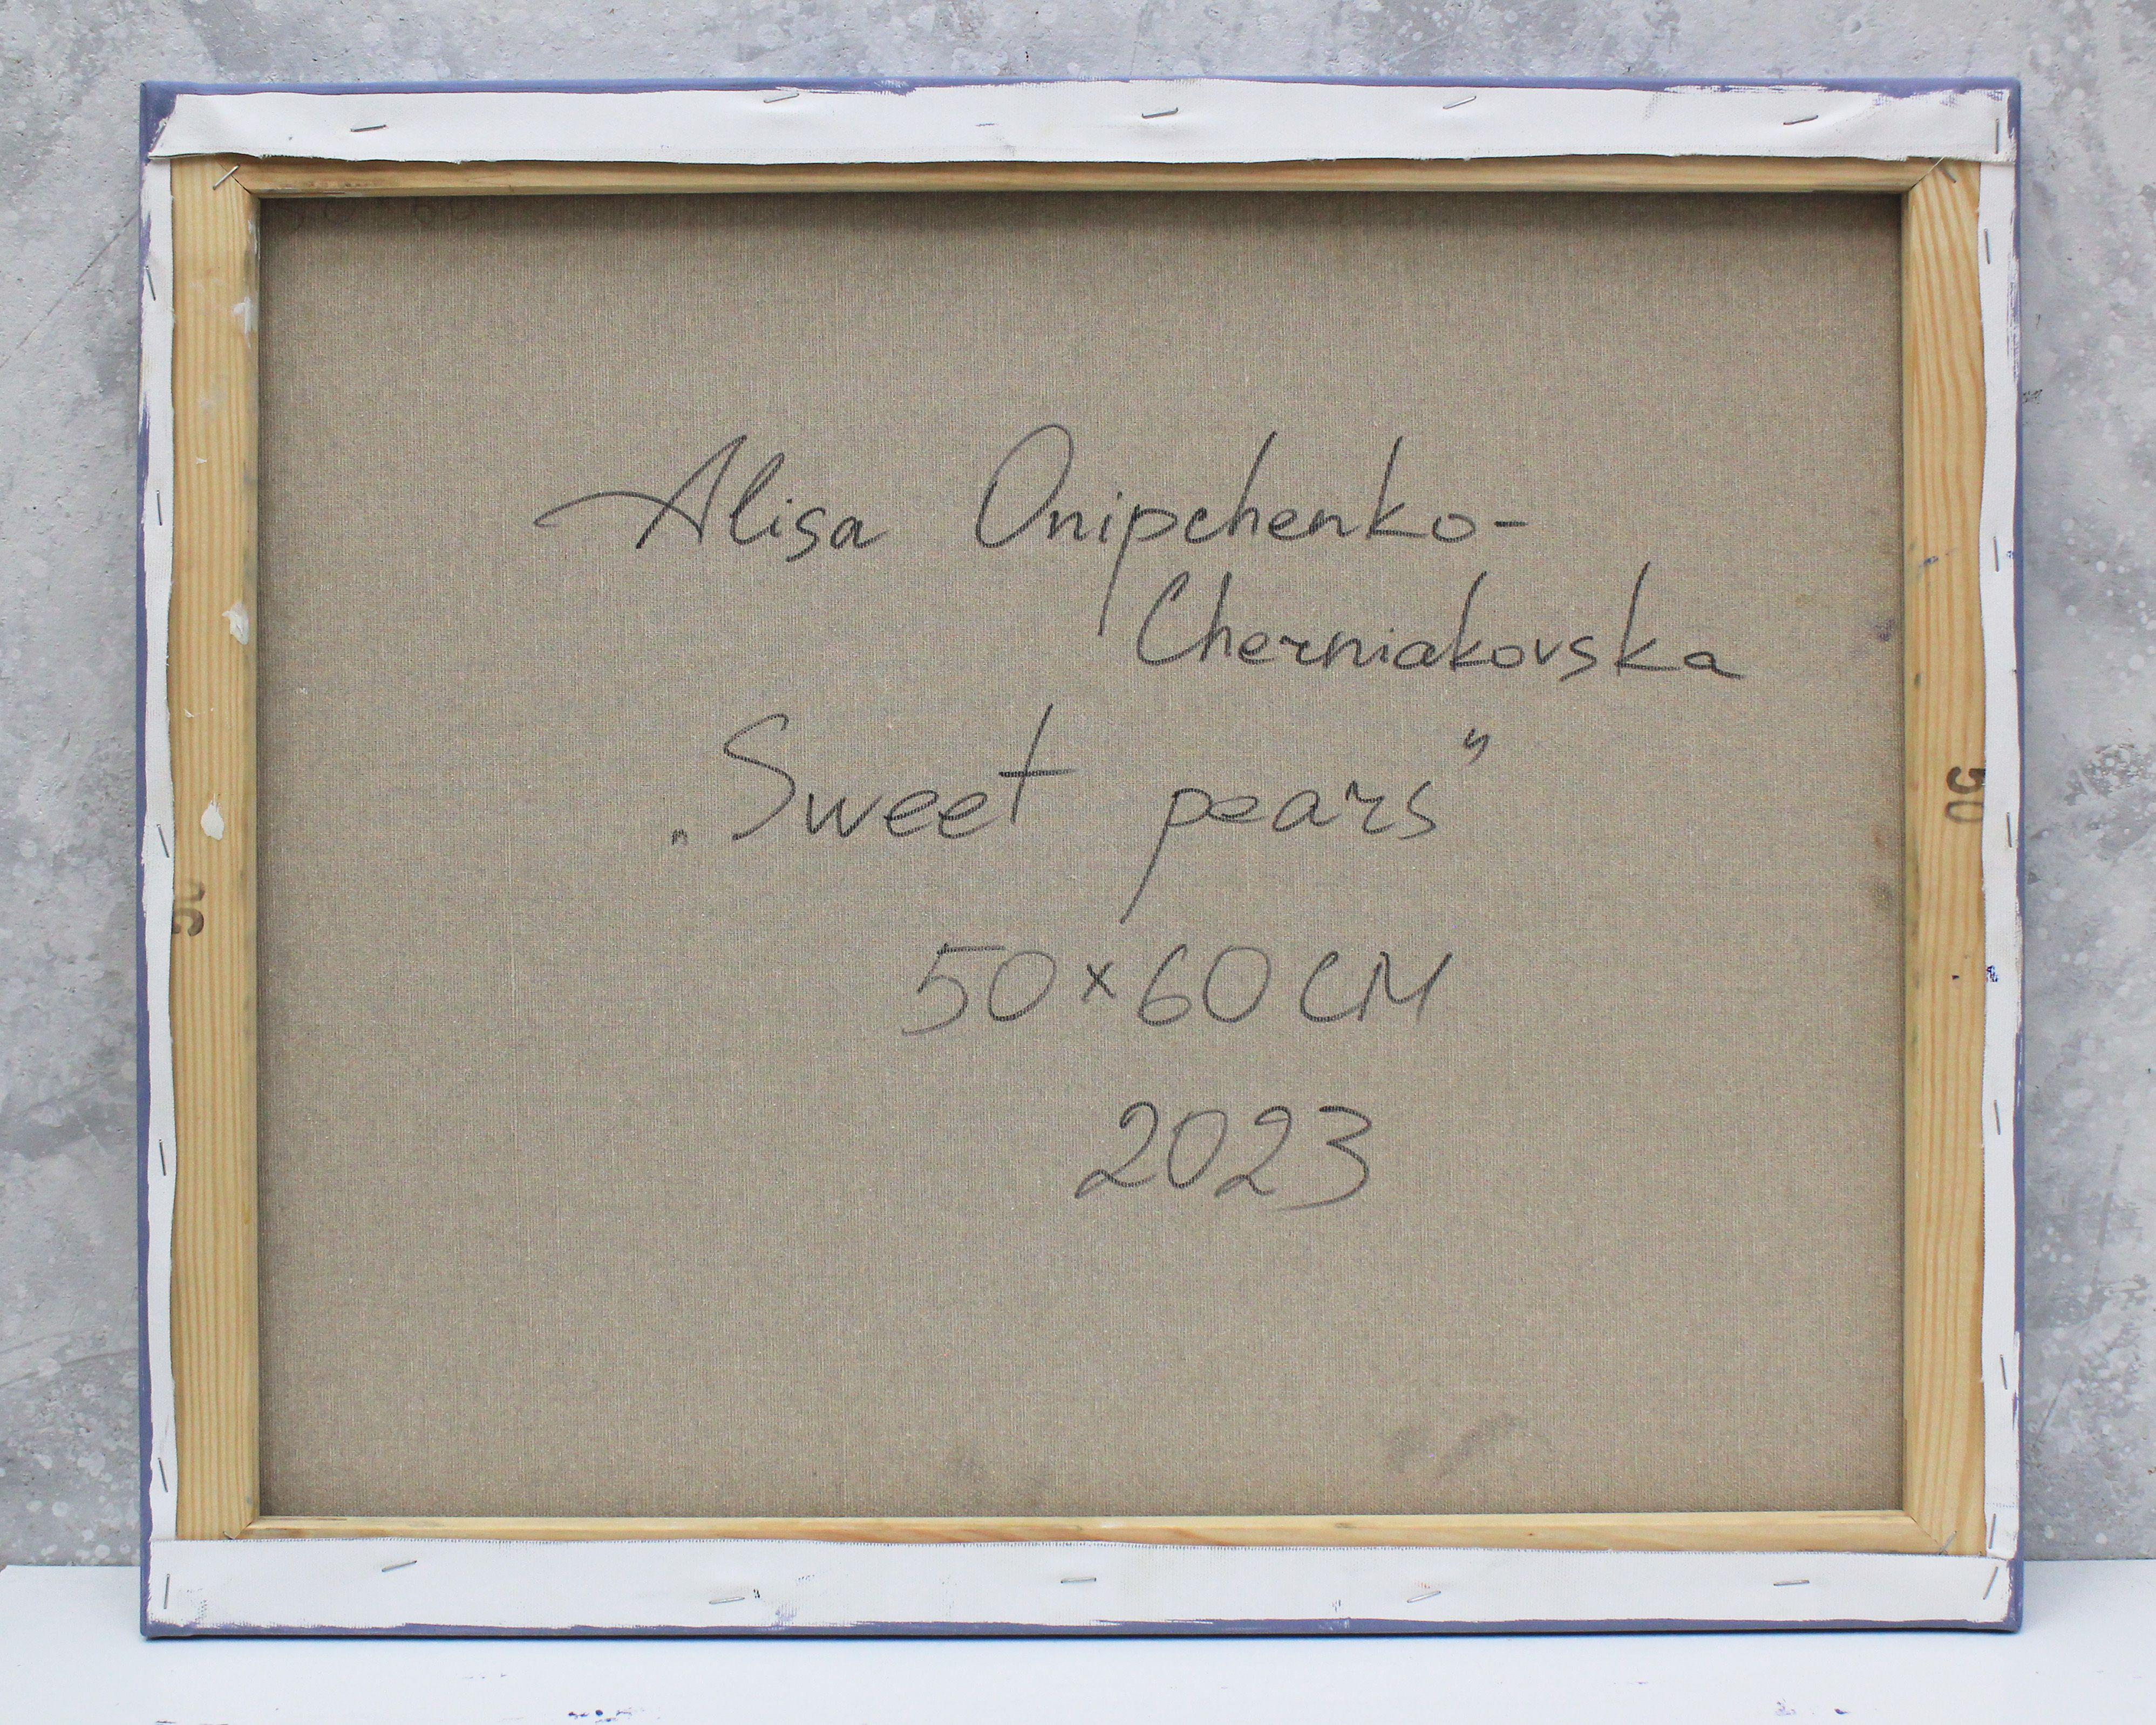 Alisa Onipchenko-
Cherniakovska
„Sweet pears"
50×60 CM
2023
50
50